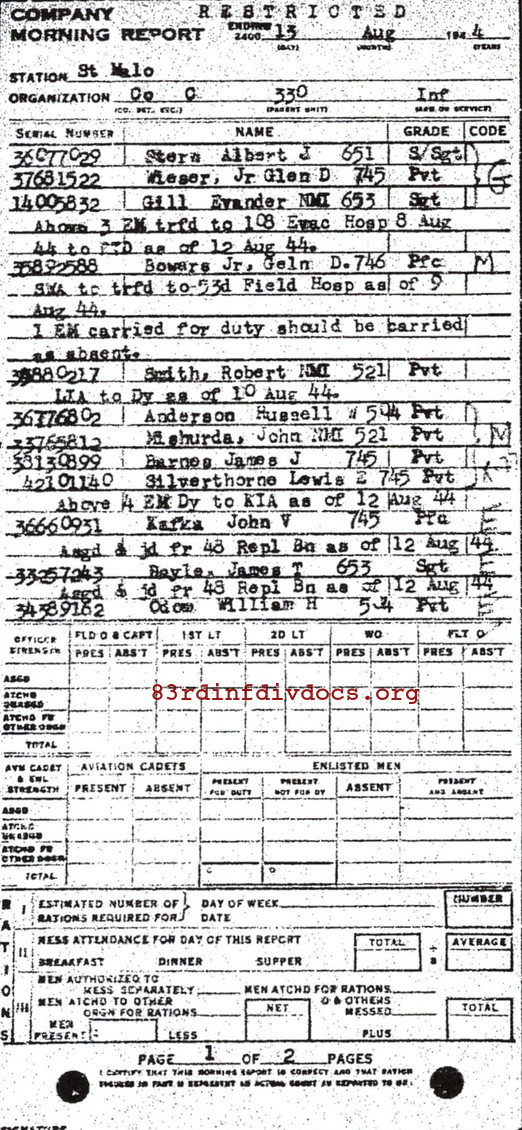 RESTRICTED
COMPANY
MORNING REPORT ENDING 2400 13 Aug 194 4
(DAY) (MONTH) (YEAR)
STATION St Malo
ORGANIZATION Co C 330 Inf
(CO, DET, ETC.) (PARENT UNIT) (ARM OR SERVICE)
SERIAL NUMBER NAME GRADE CODE
36077029 Stern Albert J 651 S/Sgt
37681522 Wieser, Jr Glen D 745 Pvt G
14005832 Gill Evander NMI 653 Sgt
Above 3 EM trfd to 108 Evac Hosp 8 Aug
44 to as of 12 Aug 44.
35892588 Bowers Jr, Geln D. 746 Pfc M
SWA to trfd to 53d Field Hosp as of 9
Aug 44.
1 EM carried for duty should be carried
as absent.
Smith, Robert NMI 521 Pvt
LIA to Dy as of 10 Aug 44.
36776802 Anderson Russell W 504 Pvt
33765812 Mishurda, John NMI 521 Pvt M
Barnes James J 745 Pvt
42101140 Silverthorne Lewis E 745 Pvt K
Above 4 EM Dy to KIA as of 12 Aug 44
36660931 Kafka John V 745 Pfc E
Asgd & jd fr 48 Repl Bn as of 12 Aug 44
33257243 Boyle, James T 653 Sgt E
Asgd & jd fr 48 Repl Bn as of 12 Aug 44
34389162 Odom William H Pvt E
OFFICER STRENGTH FLD O & CAPT 1ST LT 2D LT WO FLT O
PRES ABS'T PRES ABS'T PRES ABS'T PRES ABS'T PRES ABS'T
ASGD
ATCHD UNASGD
ATCHD FR OTHER ORGN
TOTAL
83rdinfdivdocs.org
AVN CADET & ENL STRENGTH AVIATION CADETS ENLISTED MEN
PRESENT ABSENT PRESENT FOR DUTY PRESENT NOT FOR DY ABSENT PRESENT AND ABSENT
ASGD
ATCHD UNASGD
ATCHD FR OTHER ORGN
TOTAL
RATIONS
I ESTIMATED NUMBER OF RATIONS REQUIRED FOR DAY OF WEEK DATE NUMBER
II MESS ATTENDANCE FOR DAY OF THIS REPORT TOTAL ÷ 3 AVERAGE
BREAKFAST DINNER SUPPER
III MEN AUTHORIZED TO MESS SEPARATELY MEN ATCHD FOR RATIONS
MEN ATCHD TO OTHER ORGN FOR RATIONS NET & OTHERS MESSED TOTAL
MEN PRESENT LESS PLUS
PAGE 1 OF 2 PAGES
I CERTIFY THAT THIS MORNING REPORT IS CORRECT AND THAT RATION
FIGURES IN PART II REPRESENT AN ACTUAL COUNT AS REPORTED TO ME.
SIGNATURE